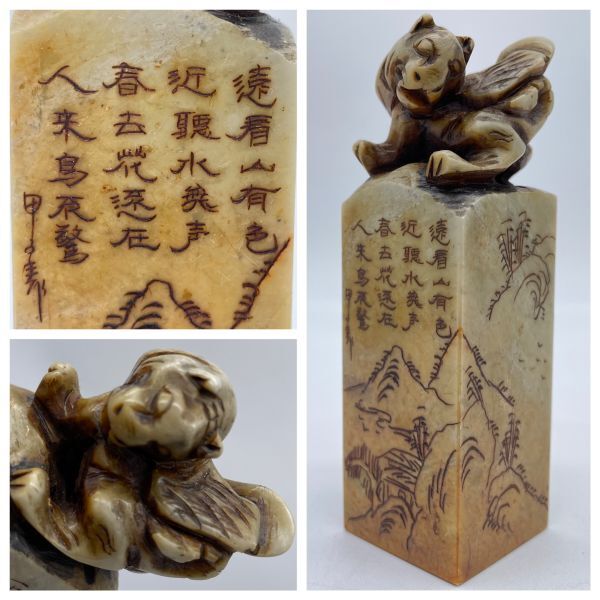 遠看山有色
近聽水無声
春去花還在
人来鳥不驚
甲子